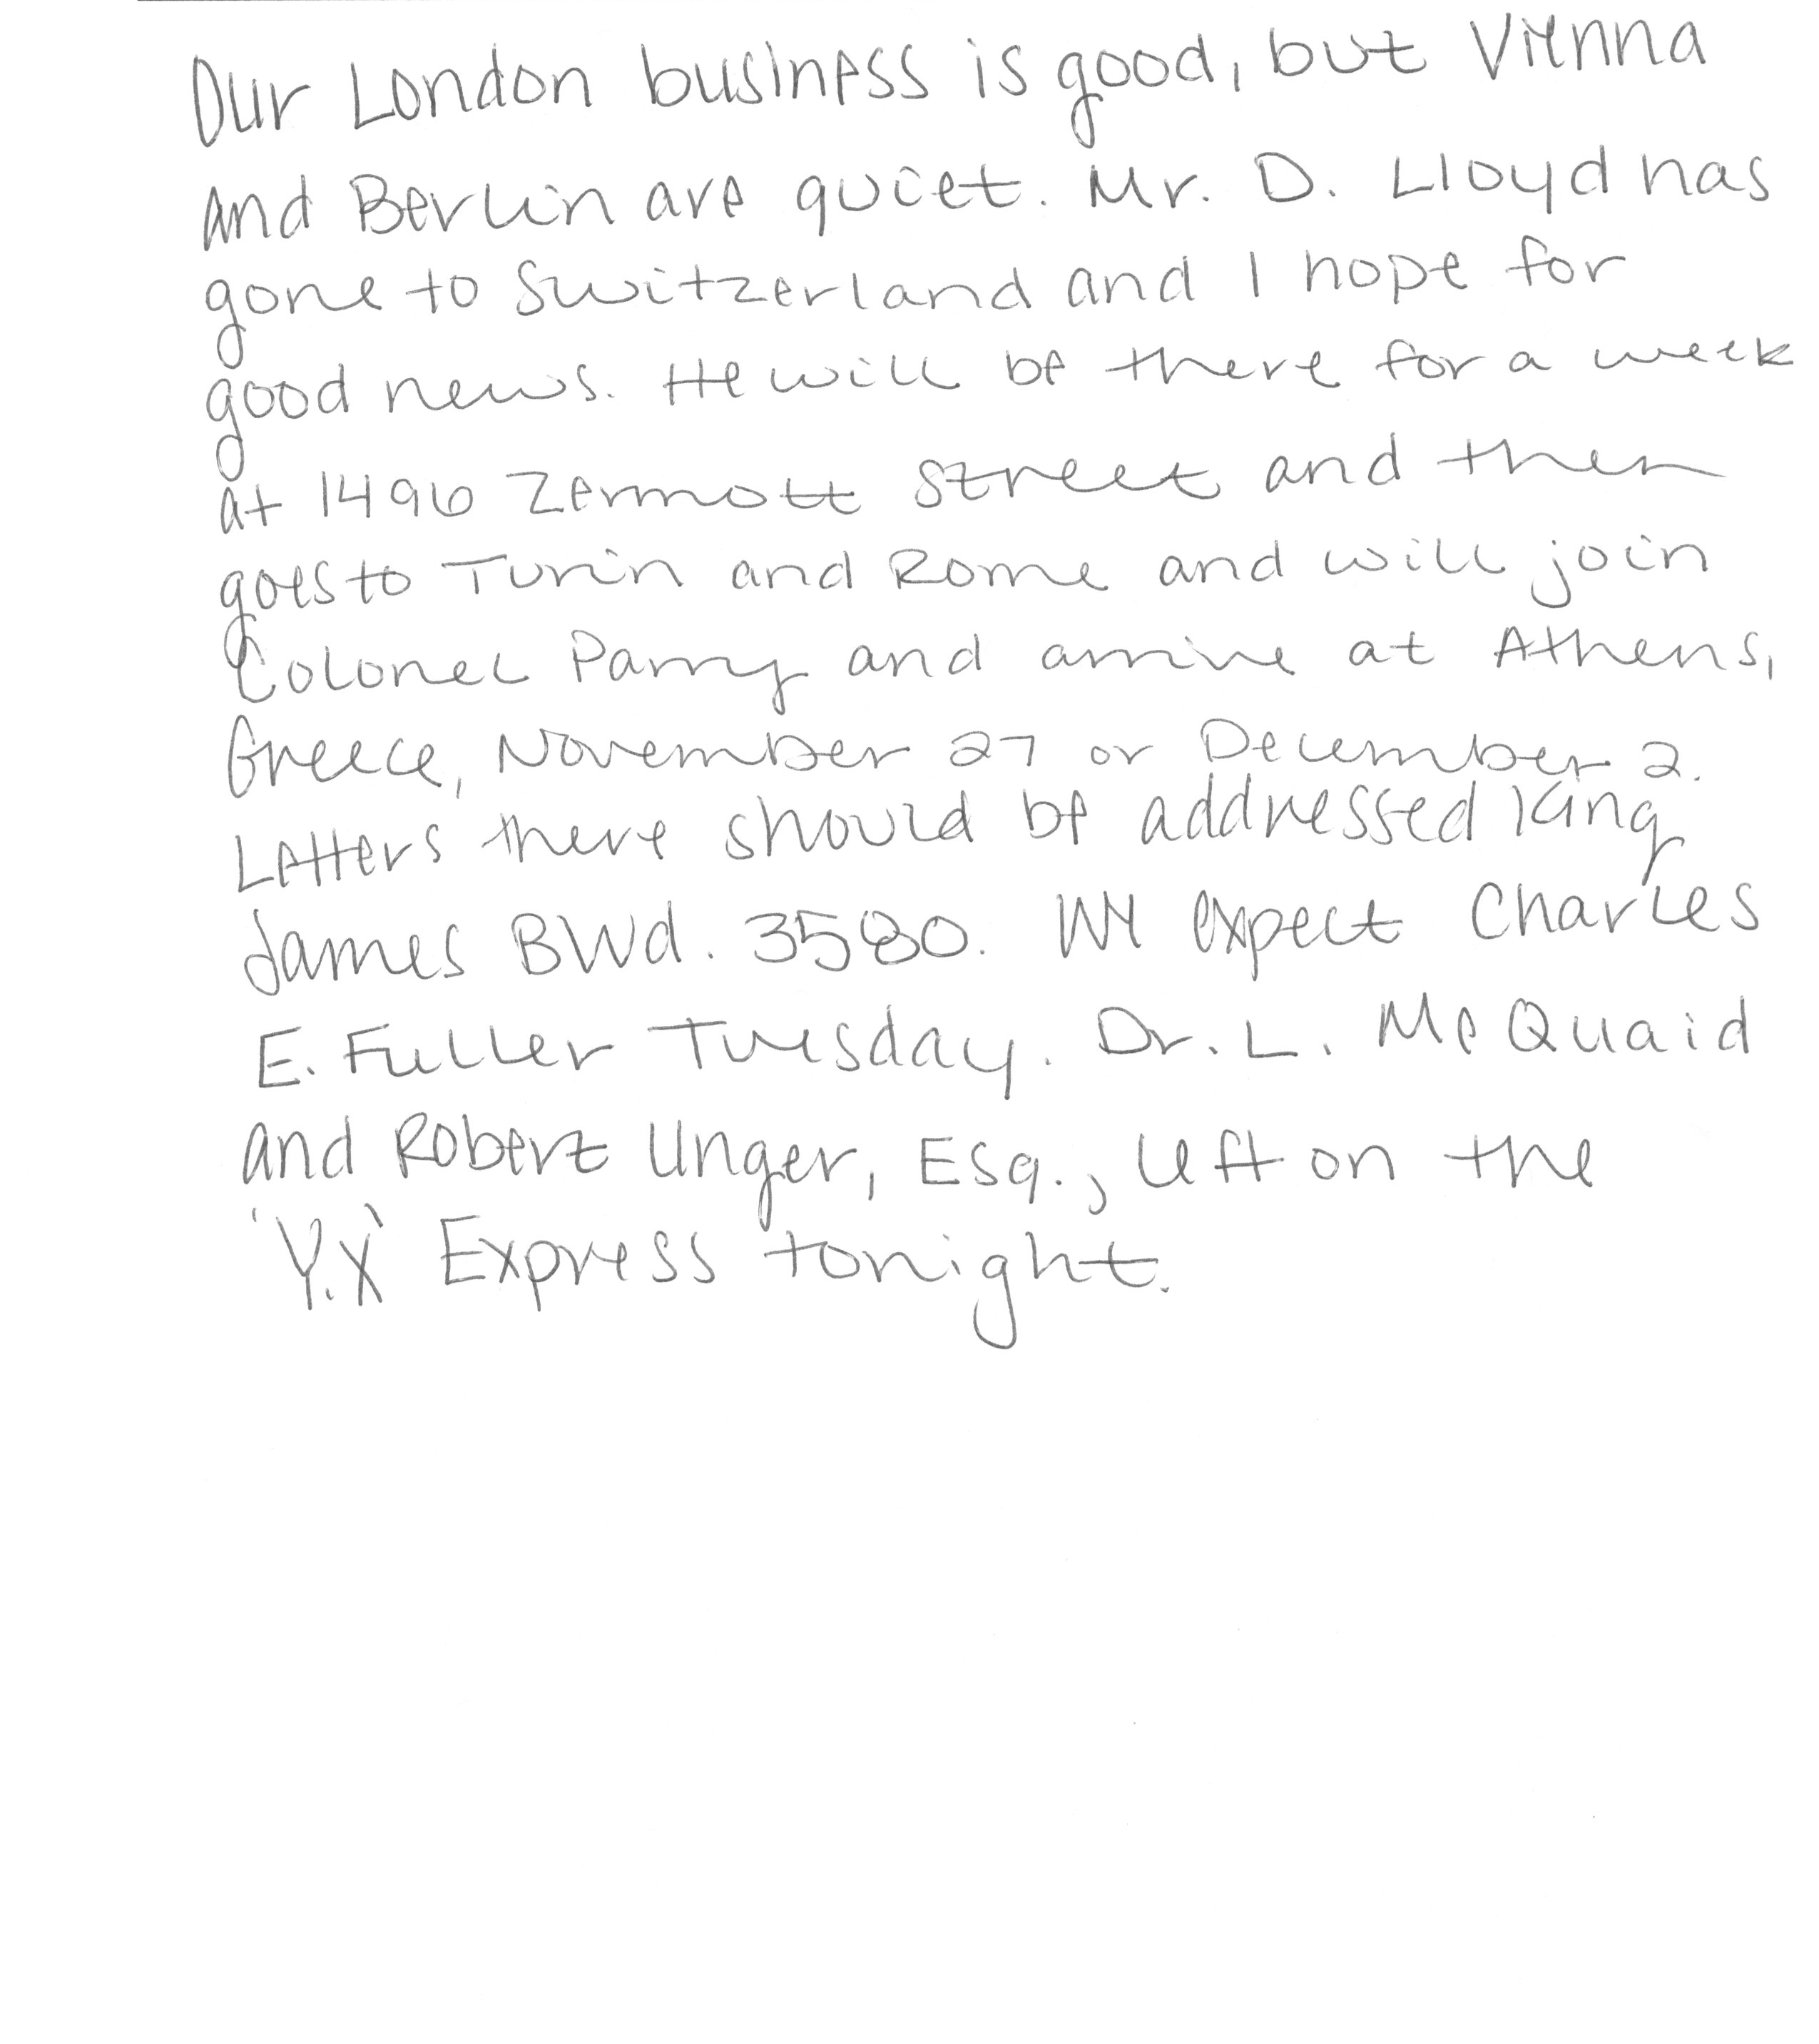 Our London business is good, but Vienna
and Berlin are quiet. Mr. D. Lloyd has
gone to Switzerland and I hope for
good news. He will be there for a week
at 1496 Zermott Street and then
goes to Turin and Rome and will join
Colonel Parry and arrive at Athens,
Greece, November 27 or December 2.
Letters there should be addressed King
James Blvd. 3580. We expect Charles
E. Fuller Tuesday. Dr. L. McQuaid
and Robert Unger, Esq., left on the
'Y.X' Express tonight.